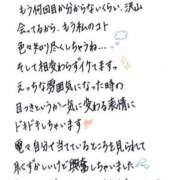 もう何回目か分からないくらい、沢山
会ってるから、もう私のコト
色々知り尽くしちゃうね…
そして相変わらずイケてますっ
えっちな雰囲気になった時の
目つきというか一気に変わる表情に
ドキドキしちゃいます
電々自分で当てているところも見られて
恥ずかしいけど興奮しちゃいました